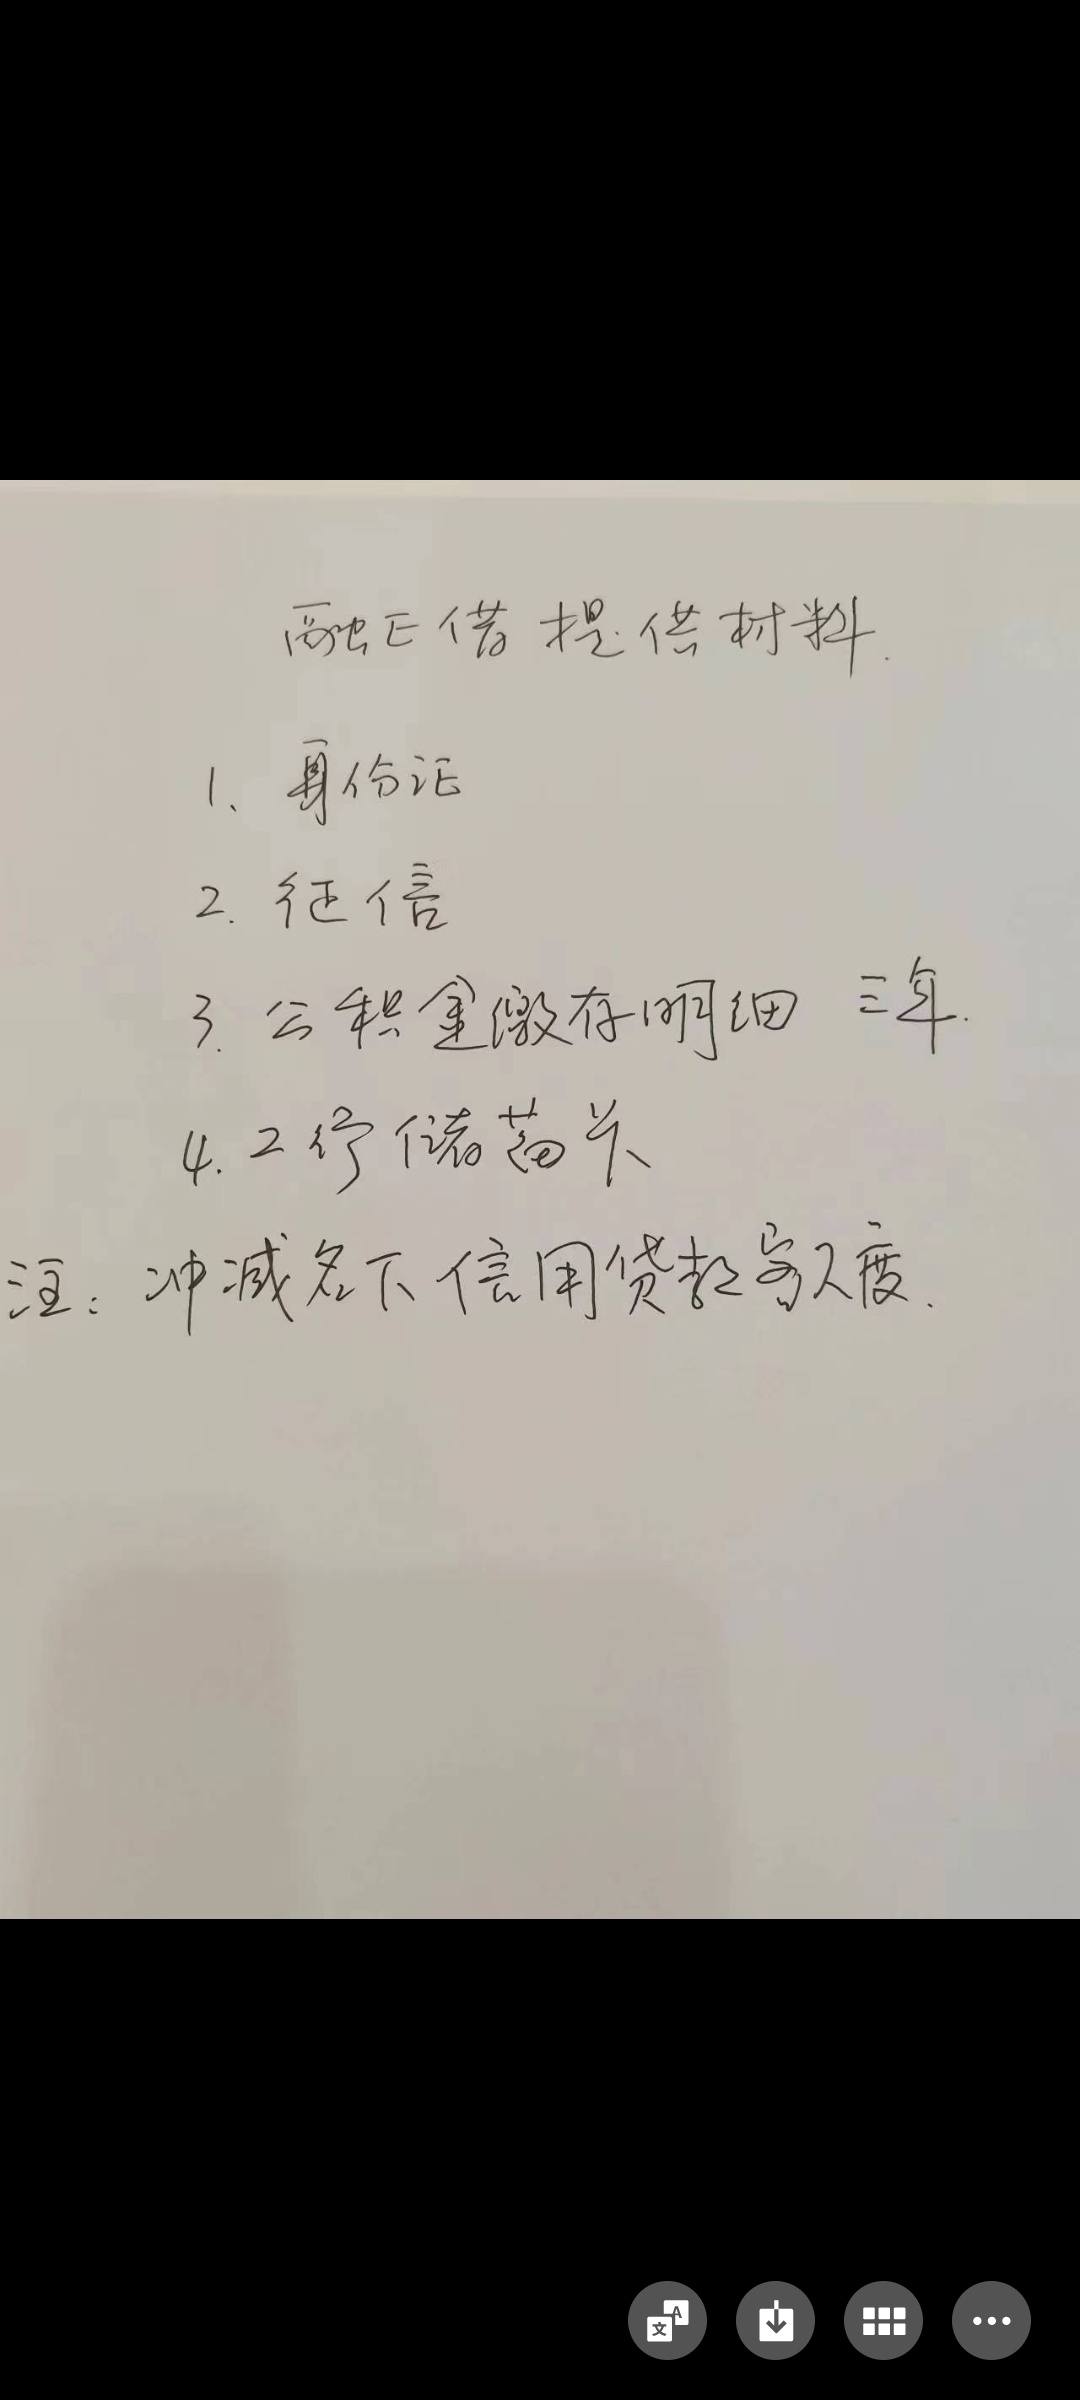 融E借提供材料.
1、身份证
2.征信
3.公积金缴存明细 三年.
4.工行储蓄卡
注:冲减名下信用贷款额度.
文A